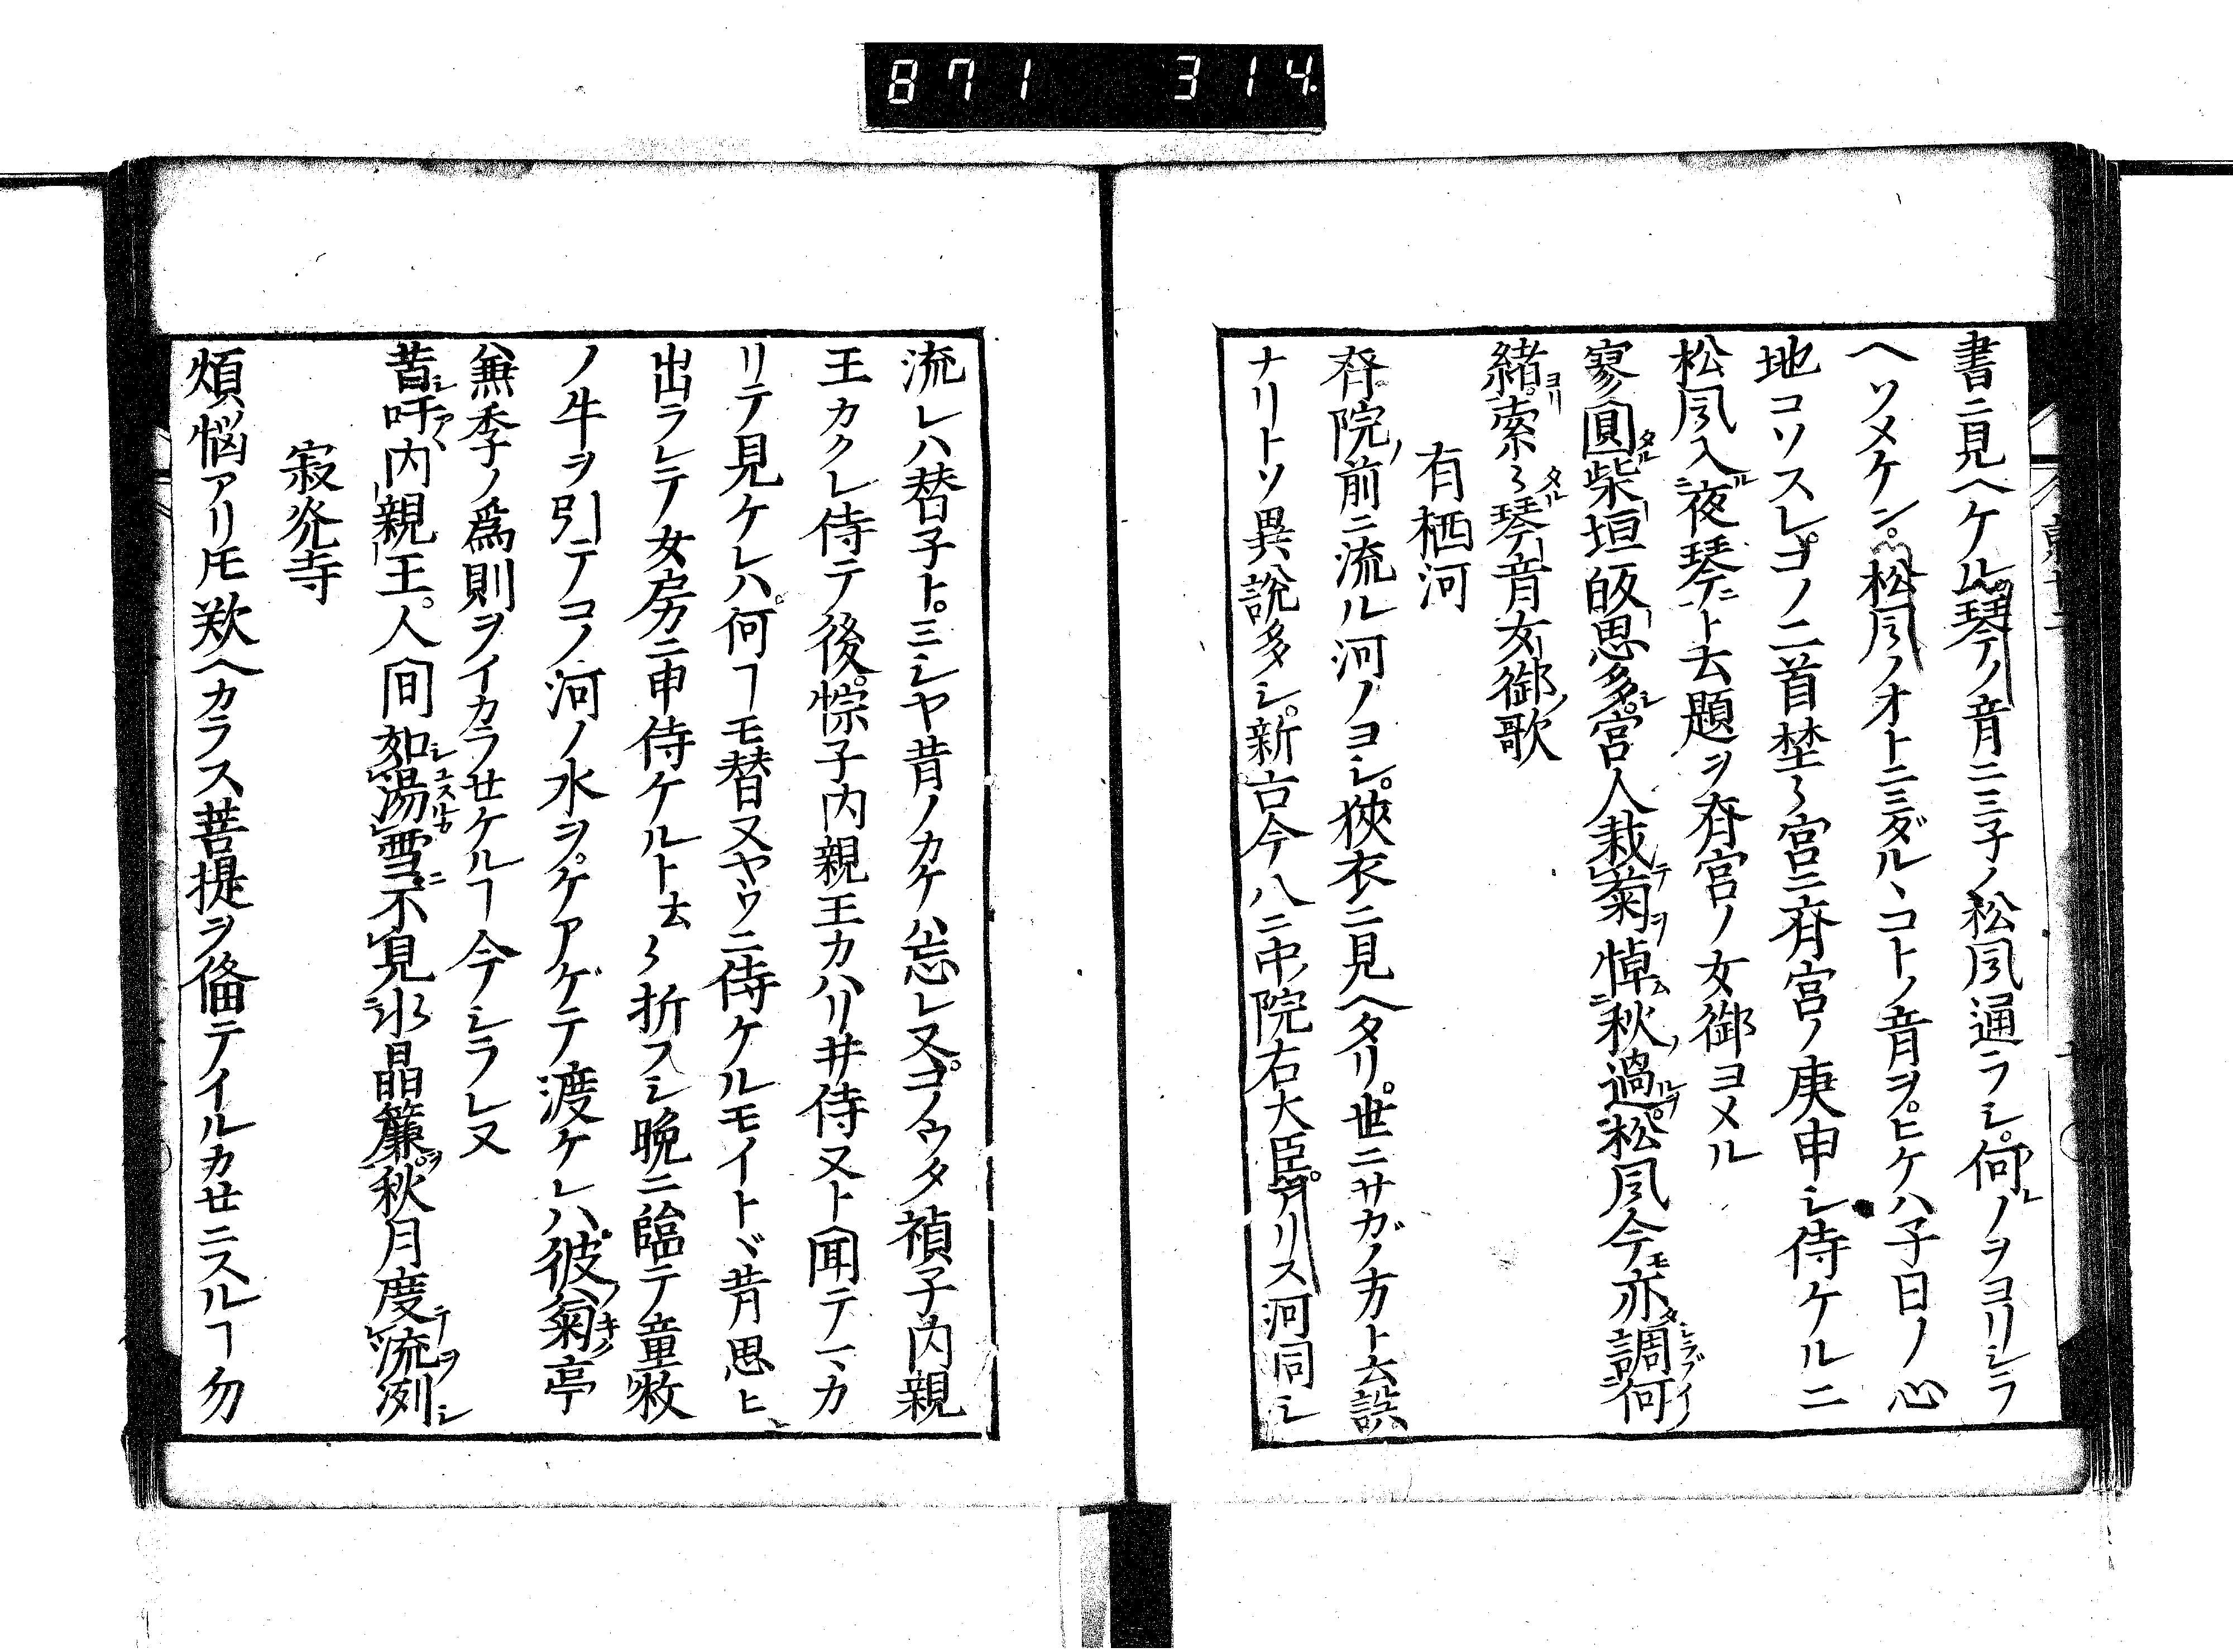 871 314
書ニ見ヘケル琴ノ音ニミ子ノ松風通ラシ何ノヲヨリシラ
ヘソメケン松風ノオトニミダルヽコトノ音ヲヒケハ子日ノ心
地コソスレコノ二首埜々宮ニ斉宮ノ庚申シ侍ケルニ
松風入夜琴ニト云題ヲ斉宮ノ女御ヨメル
寥圓柴垣皈思多宮人栽菊悼秋過松風今亦調何
緒索々琴音女御歌
有栖河
斉院ノ前ニ流ル河ノヨシ狭衣ニ見ヘタリ世ニサガノ方ト云説
ナリトソ異説多シ新古今八ニ中ノ院右大臣アリス河同シ
流レハ替子トミシヤ昔ノカケハ忘レヌコノウタ禎子内親
王カクレ侍テ後悰子内親王カハリ井侍ヌト聞テマカ
リテ見ケレハ何ヿモ替ヌヤウニ侍ケルモイトヾ昔思ヒ
出ラレテ女房ニ申侍ケルト云々折フシ晩ニ臨テ童敕
ノ牛ヲ引テコノ河ノ水ヲケアゲテ渡ケレハ彼菊亭
無季ノ爲則ヲイカラセケルヿ今シラレヌ
昔吁内親王人間如湯雪不見氷晶簾秋月度流冽
寂光寺
煩悩アリ𪜈歎ヘカラス菩提ヲ偹テイルカセニスルヿ勿